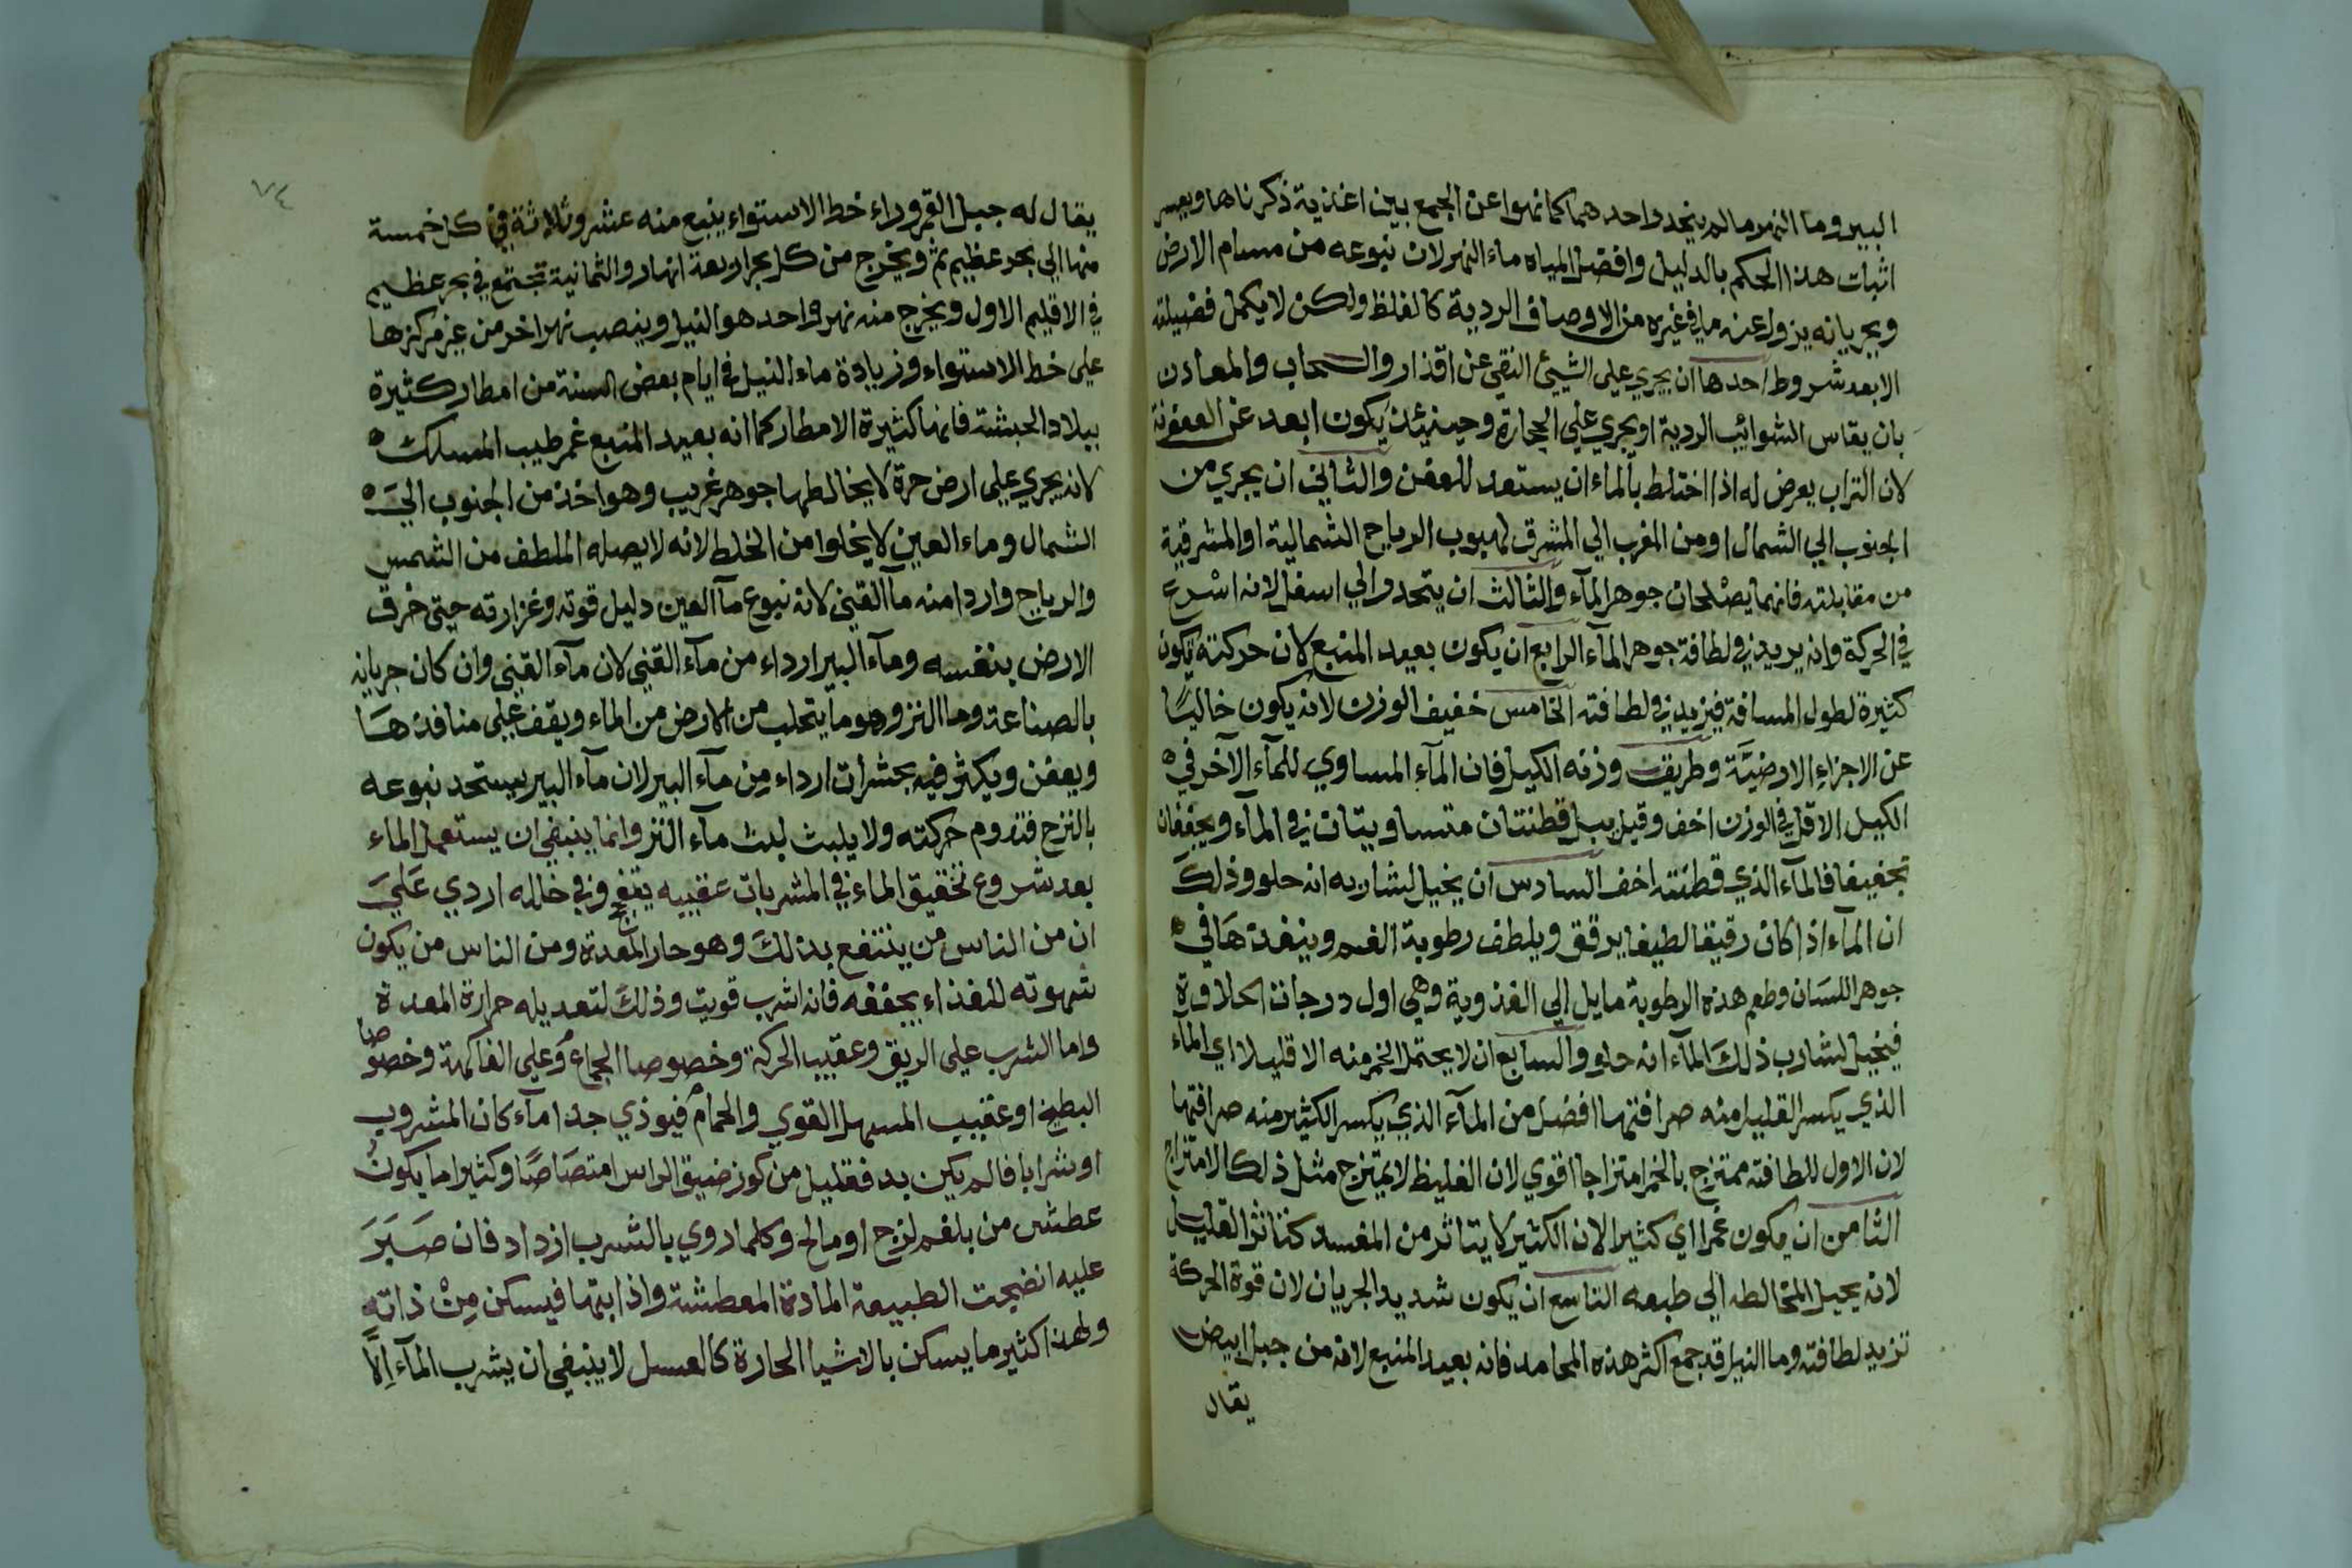 البير وما النهر ما لم ينحد واحد هما كما نهوا عن الجمع بين اغذية ذكرناها ويعسر
اثبات هذا الحكم بالدليل وافضل المياه ماء النهر لان نبوعه من مسام الارض
وبجريانه يزول عنه ما في غيره من الاوصاف الردية كالغلظ ولكن لا يكمل فضيلته
الا بعد شروط احدها ان يجري علي الشيئ النقي عن اقذار والسحاب والمعادن
بان يقاس الشوائب الردية او يجري علي الحجارة وحينئذ يكون ابعد عن العفونة
لان التراب يعرض له اذا اختلط بالماء ان يستعد للعفن والثاني ان يجري من
الجنوب الي الشمال او من المغرب الي المشرق لهبوب الرياح الشمالية او المشرقية
من مقابلته فانهما يصلحان جوهر المآء والثالث ان يتحدر الي اسفل لانه اسرع
في الحركة وانه يريد في لطافة جوهر المآء الرابع ان يكون بعيد المنبع لان حركته تكون
كثيرة لطول المسافة فيزيد في لطافته الخامس خفيف الوزن لانه يكون خاليًا
عن الاجزاء الارضيَّة وطريق وزنه الكيل فان المآء المساوي للمآء الآخر في
الكيل الاقل في الوزن اخف وقيل يبل قطنتان متساويتان في المآء ويجففان
تجفيفا فالمآء الذي قطنته اخف السادس ان يخيل لشاربه انه حلو وذلك
ان المآء اذا كان رقيقا لطيفا يرقق ويلطف رطوبة الفم وينفذها في
جوهر اللسان وطعم هذه الرطوبة مايل الي العذوبة وهي اول درجات الحلاوة
فيخيل لشارب ذلك المآء انه حلو والسابع ان لا يحتمل الخمر منه الا قليلا اي الماء
الذي يكسر القليل منه صرافتها افضل من المآء الذي يكسر الكثير منه صرافتها
لان الاول للطافته ممتزج بالخمر امتزاجا اقوي لان الغليظ لا يمتزج مثل ذلك الامتزاج
الثامن ان يكون غمرا اي كثيرا لان الكثير لا يتاثر من المفسد كتاثر القليل
لانه يحيل المخالطه الي طبعه التاسع ان يكون شديد الجريان لان قوة الحركة
تزيد لطافته وما النيل قد جمع اكثر هذه المحامد فانه بعيد المنبع لانه من جبل ابيض
يقال
٧٤
يقال له جبل القمر وراء خط الاستواء ينبع منه عشر وثلاثة في كل خمسة
منها الي بحر عظيم ثم ويخرج من كل بحر اربعة انهار والثمانية تجتمع في بحر عظيم
في الاقليم الاول ويخرج منه نهر واحد هو النيل وينصب نهر اخر من عين مركزها
علي خط الاستواء وزيادة ماء النيل في ايام بعض السنة من امطار كثيرة
ببلاد الحبشة فانها كثيرة الامطار كما انه بعيد المنبع غمر طيب المسلك
لانه يجري علي ارض حرة لا يخالطها جوهر غريب وهو اخذ من الجنوب الي
الشمال وماء العين لا يخلوا من الخلط لانه لا يصله الملطف من الشمس
والرياح واردا منه مآ القني لانه نبوع مآ العين دليل قوته وغزارته حتي خرق
الارض بنفسه ومآء البير ارداء من مآء القني لان مآء القني وان كان جريانه
بالصناعة وما النز وهو ما يتحلب من الارض من الماء ويقف علي منافذها
ويعفن ويكثر فيه بحشرات ارداء من مآء البير لان مآء البير يستحد نبوعه
بالنزح فتدوم حركته ولا يلبث لبث مآء النز وانما ينبغي ان يستعمل الماء
بعد شروع تحقيق الماء في المشربات عقيبه يتفع وفي خلله اردي عَلي
ان من الناس من ينتفع بذلك وهو حار المعدة ومن الناس من يكون
شهوته للغذاء يجففه فانه اشرب قويت وذلك لتعديله حرارة المعدة
واما الشرب علي الريق وعقيب الحركة وخصوصا الجماع وعلي الفاكهة وخصوصا
البطيخ او عقيب المسهل القوي والحمام فيوذي جدا مآء كان المشروب
او شرابا فالم يكن بد فقليل من كوز ضيق الراس امتصَاصًا وكثيرا ما يكون
عطش من بلغم لزج او مالح وكلما روي بالشرب ازداد فان صَبَرَ
عليه انضجت الطبيعة المادة المعطشة واذابتها فيسكن مِنْ ذاته
ولهذا كثير ما يسكن بالاشيا الحارة كالعسل لا ينبغي ان يشرب المآء اِلاَّ